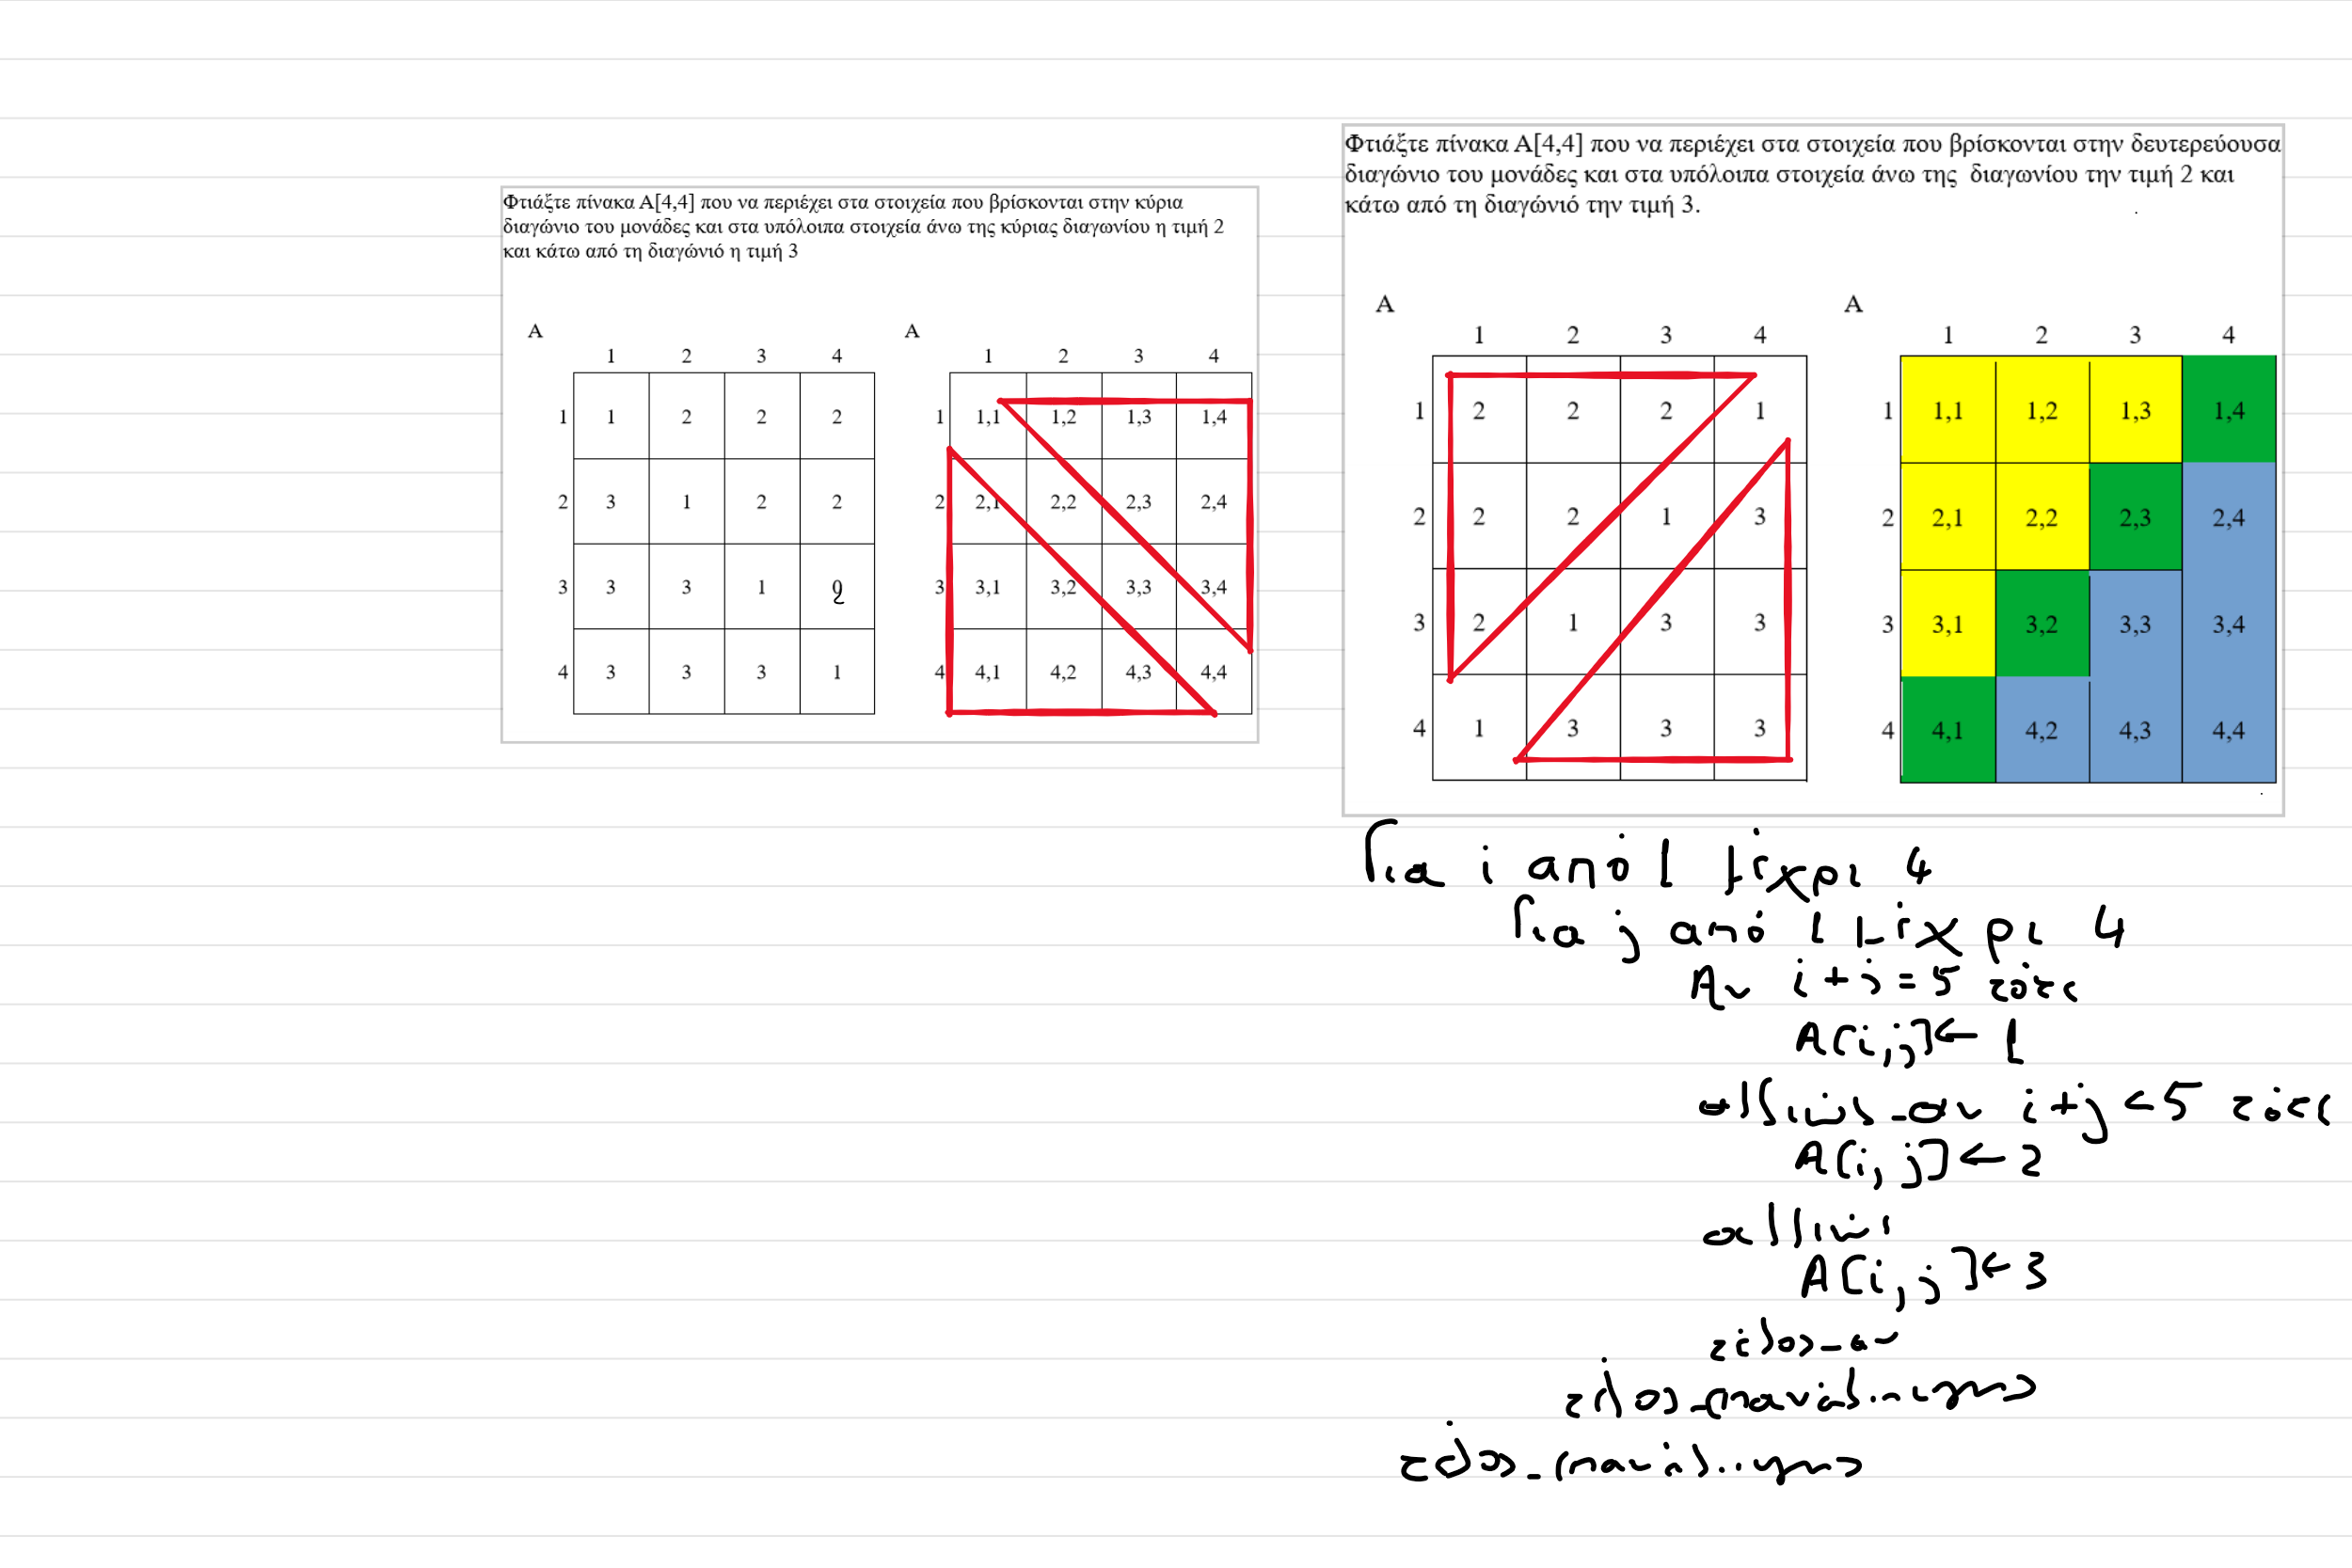 Φτιάξτε πίνακα Α[4,4] που να περιέχει στα στοιχεία που βρίσκονται στην κύρια
διαγώνιο του μονάδες και στα υπόλοιπα στοιχεία άνω της κύριας διαγωνίου η τιμή 2
και κάτω από τη διαγώνιό η τιμή 3
Α Α
1 2 3 4 1 2 3 4
1 1 2 2 2 1 1,1 1,2 1,3 1,4
2 3 1 2 2 2 2,1 2,2 2,3 2,4
3 3 3 1 2 3 3,1 3,2 3,3 3,4
4 3 3 3 1 4 4,1 4,2 4,3 4,4
Φτιάξτε πίνακα Α[4,4] που να περιέχει στα στοιχεία που βρίσκονται στην δευτερεύουσα
διαγώνιο του μονάδες και στα υπόλοιπα στοιχεία άνω της διαγωνίου την τιμή 2 και
κάτω από τη διαγώνιό την τιμή 3.
Α Α
1 2 3 4 1 2 3 4
1 2 2 2 1 1 1,1 1,2 1,3 1,4
2 2 2 1 3 2 2,1 2,2 2,3 2,4
3 2 1 3 3 3 3,1 3,2 3,3 3,4
4 1 3 3 3 4 4,1 4,2 4,3 4,4
Για i από 1 μέχρι 4
Για j από 1 μέχρι 4
Αν i+j=5 τότε
Α[i,j]← 1
αλλιώς_αν i+j<5 τότε
Α[i,j]← 2
αλλιώς
Α[i,j]← 3
τέλος_αν
τέλος_επανάληψης
τέλος_επανάληψης